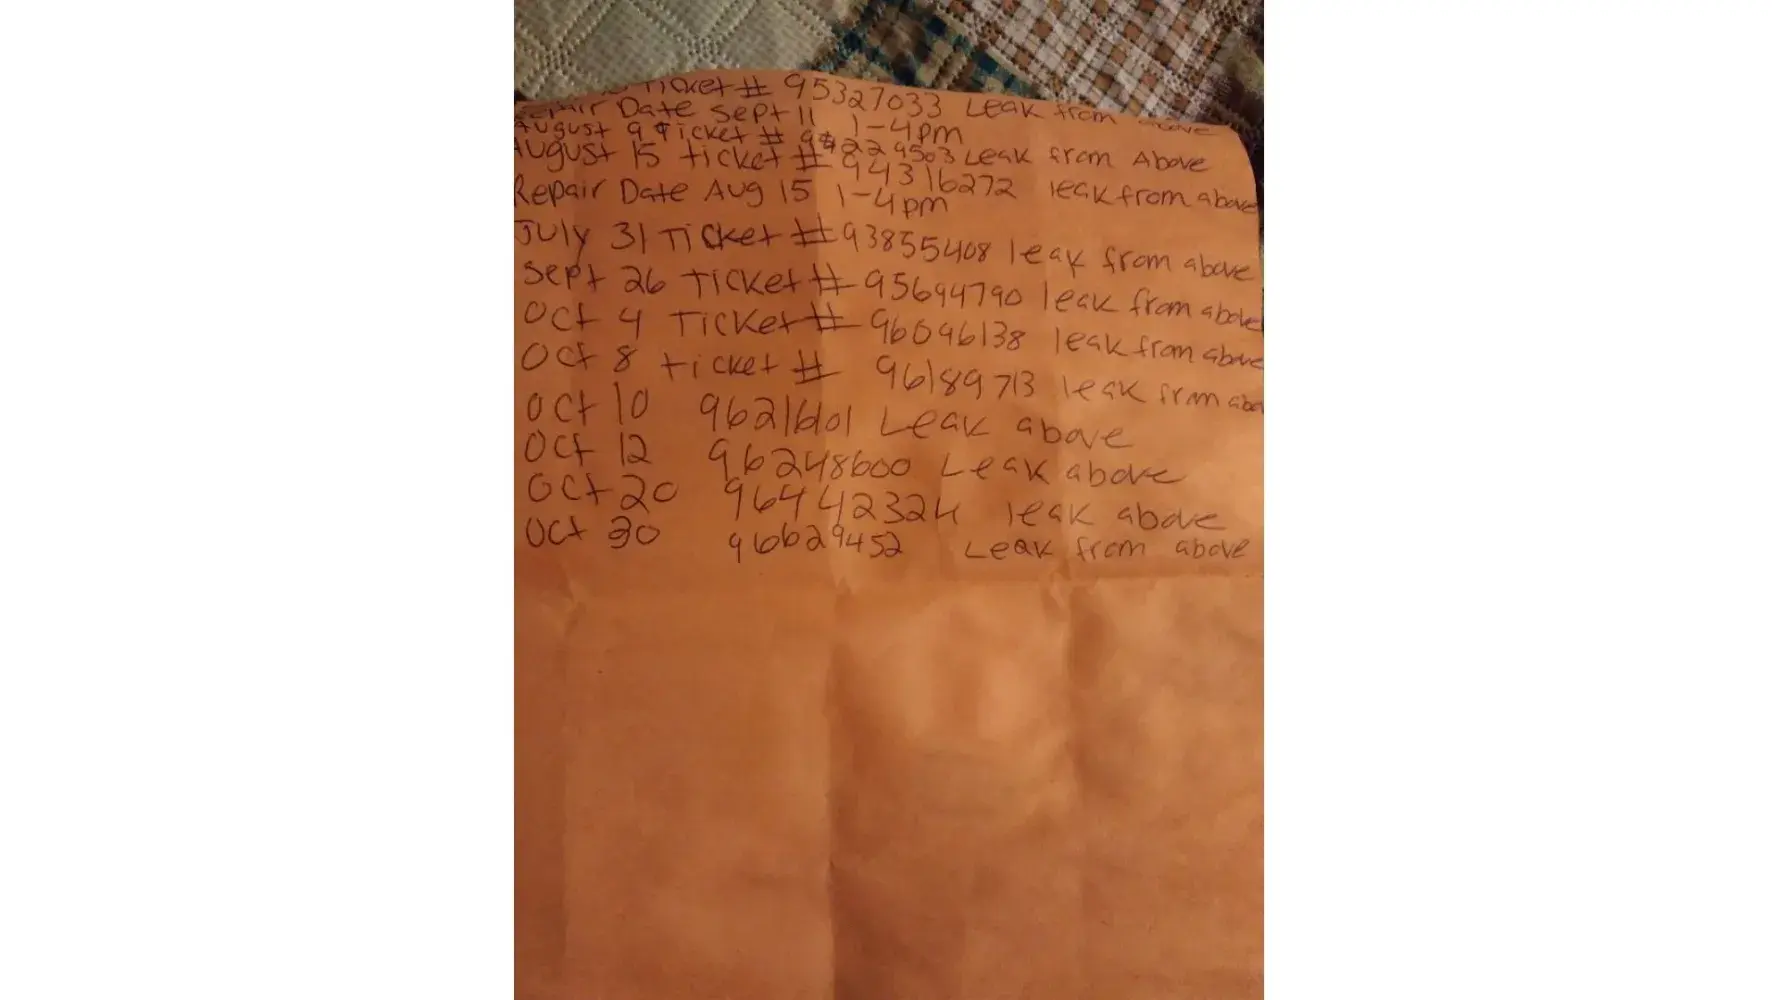 Ticket # 95327033 Leak from above
Repair Date Sept 11 1-4pm
August 9 Ticket # 94229503 Leak from Above
August 15 ticket # 94316272 leak from above
Repair Date Aug 15 1-4pm
July 31 Ticket # 93855408 leak from above
Sept 26 Ticket # 95694790 leak from above
Oct 4 Ticket # 96046138 leak from above
Oct 8 ticket # 96189713 leak from abo
Oct 10 Leak above
Oct 12 96248600 Leak above
Oct 20 964442324 leak above
Oct 30 96629452 Leak from above